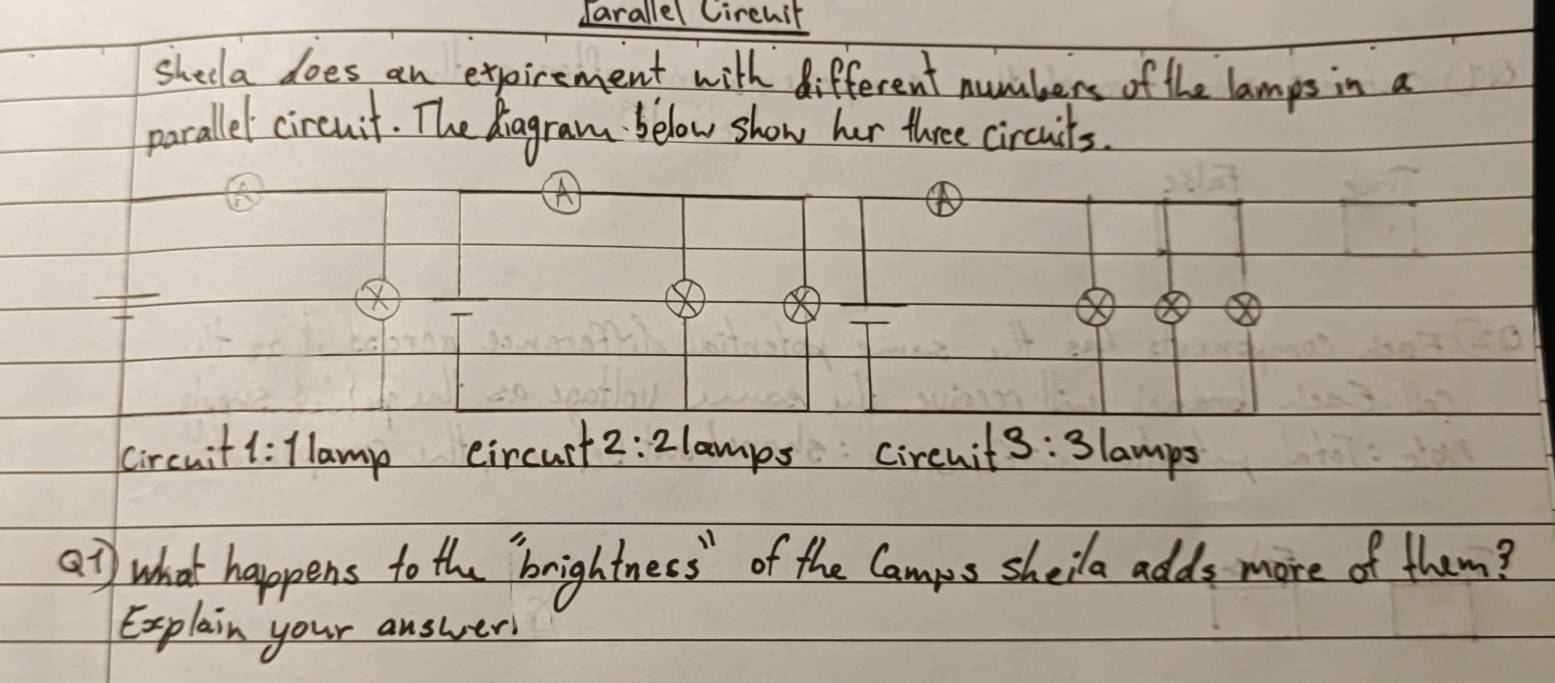 Parallel Circuit
Sheela does an expirement with different numbers of the lamps in a
parallel circuit. The diagram below show her three circuits.
A A A
circuit 1: 1 lamp circuit 2: 2 lamps circuit 3: 3 lamps
Q1) What happens to the "brightness" of the lamps sheila adds more of them?
Explain your answer.